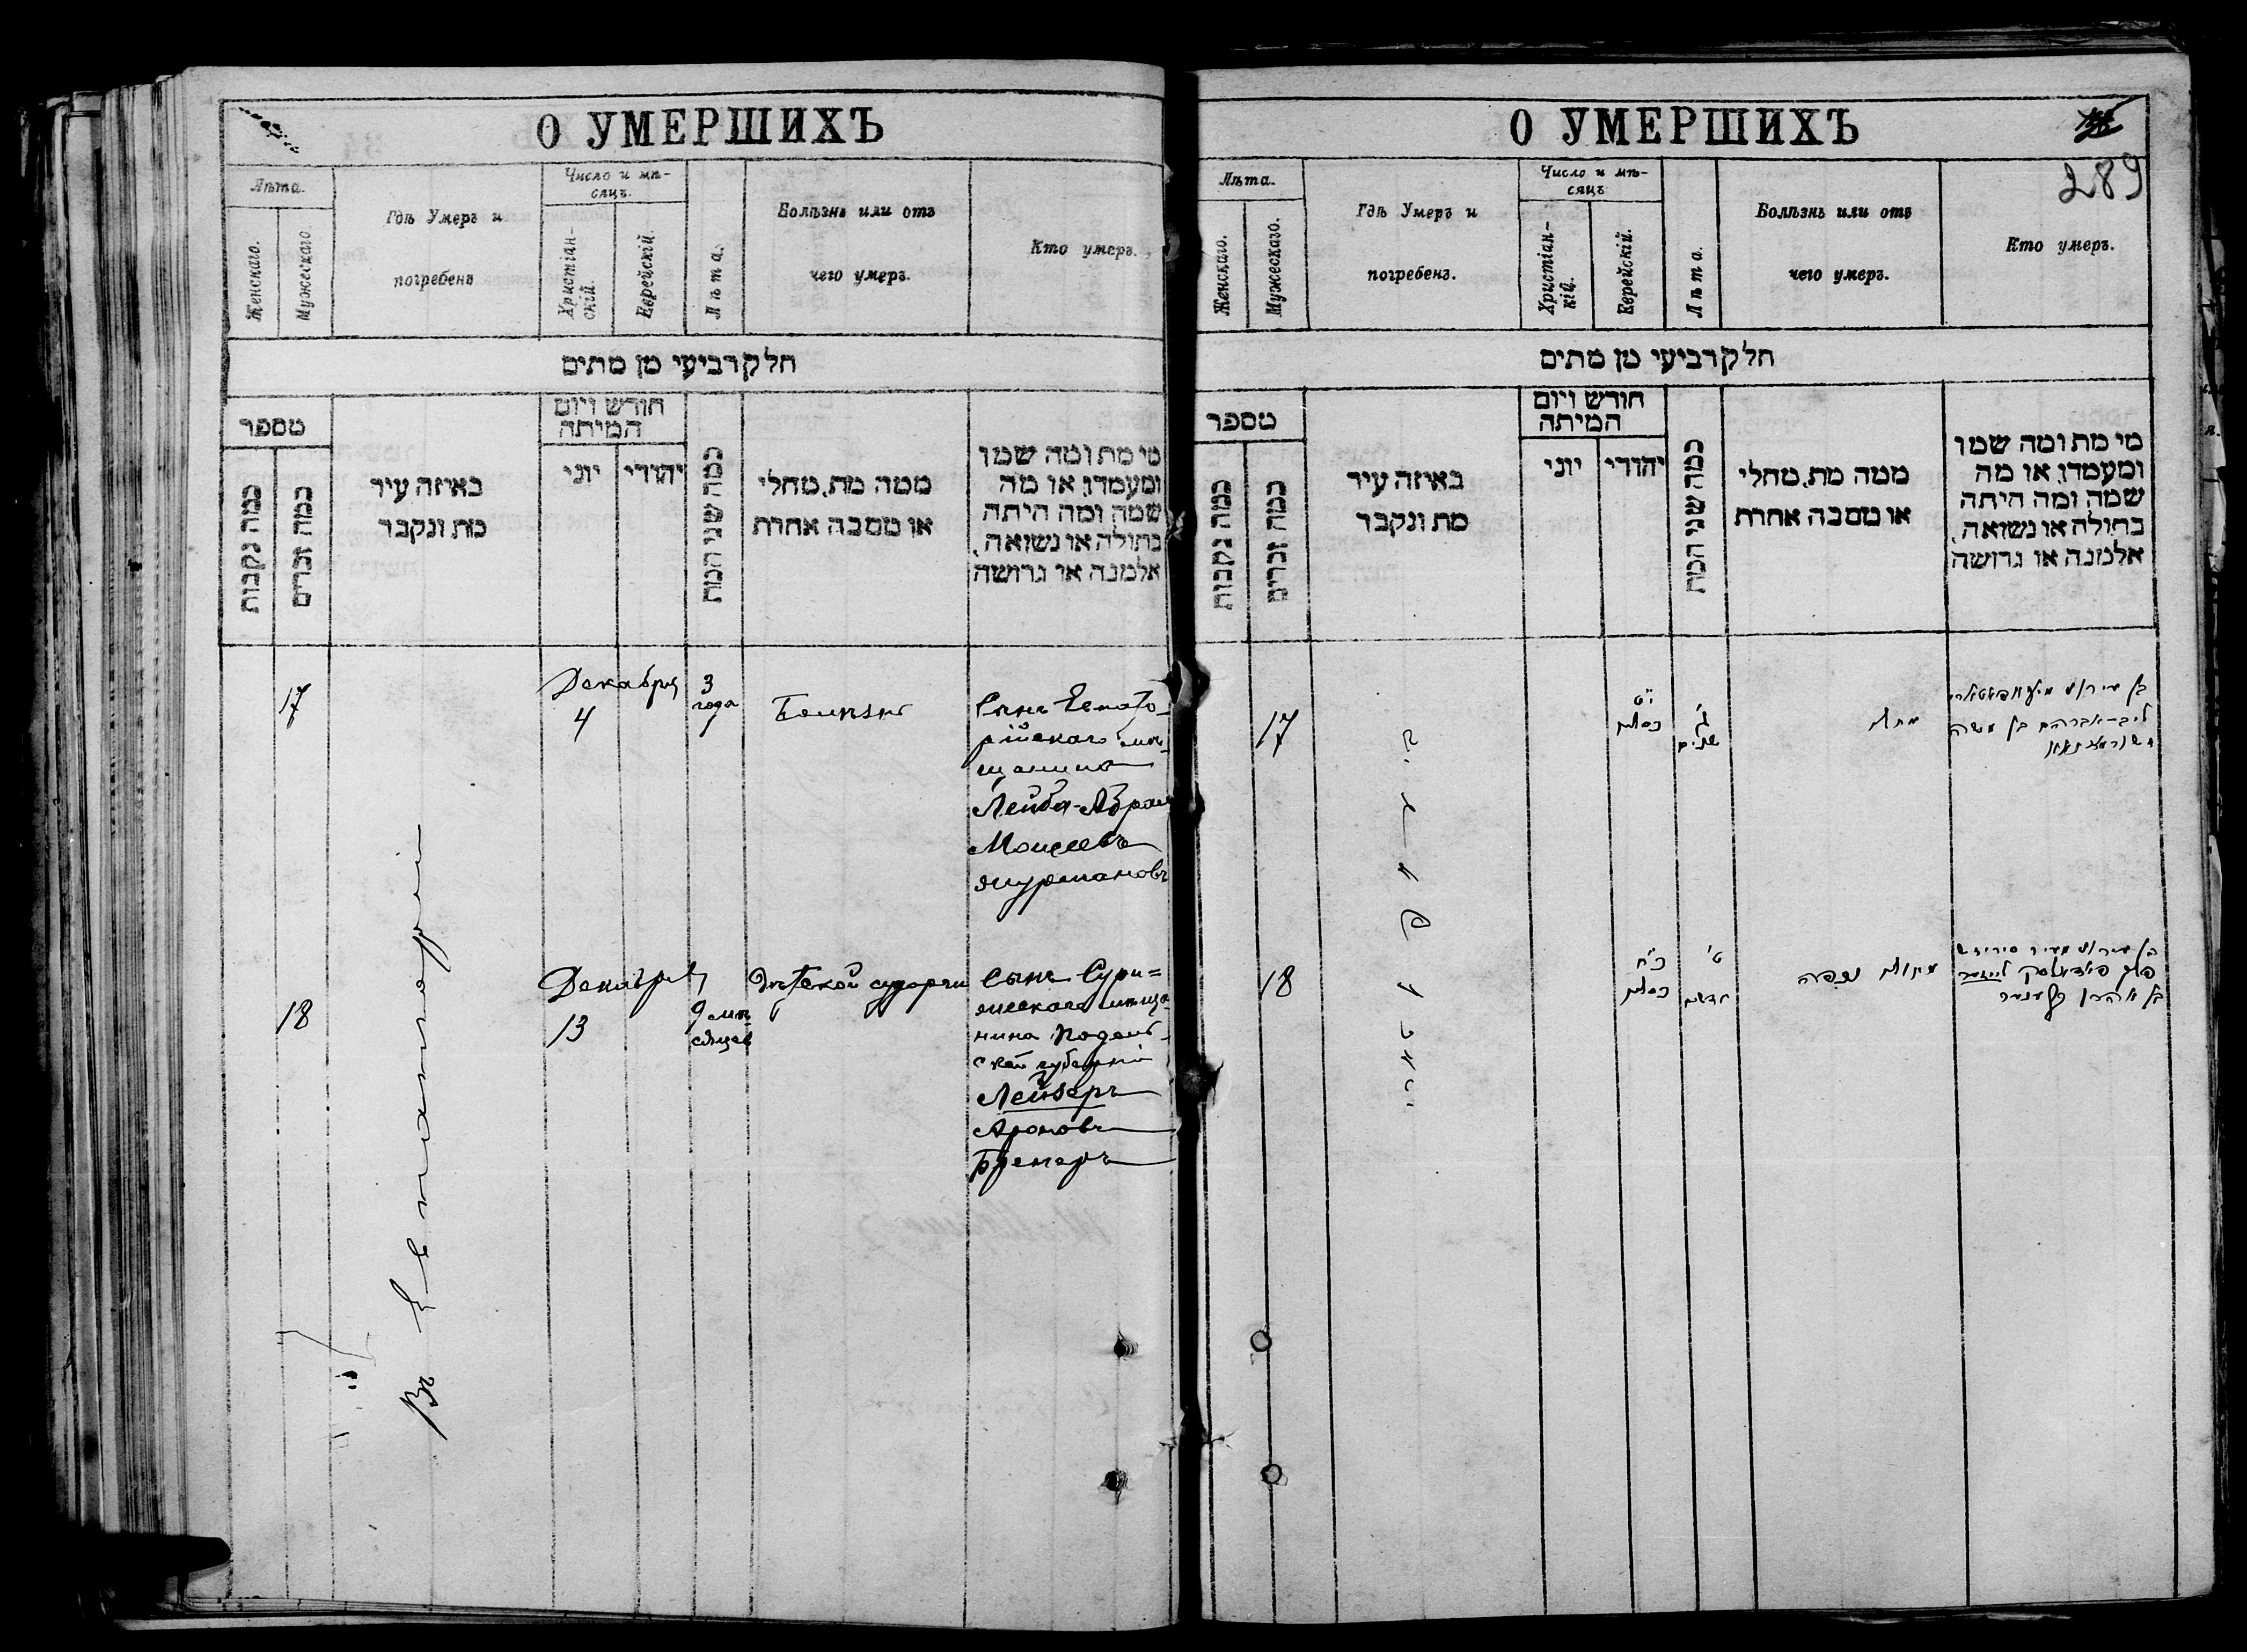 О УМЕРШИХЪ
Лѣта.
Женскаго.
Мужескаго.
Гдѣ Умеръ и
погребенъ
Число и мѣ-
сяцъ.
Христіан-
скій.
Еврейскій.
Лѣта.
Болѣзнь или отъ
чего умеръ.
Кто умеръ.
חלק רביעי מן מתים
מספר
כמה נקבות
כמה זכרים
באיזה עיר
מת ונקבר
חודש ויום
המיתה
יוני
יהודי
כמה שני המת
ממה מת, מחלי
או מסבה אחרת
מי מת ומה שמו
ומעמדו, או מה
שמה ומה היתה
בתולה או נשואה,
אלמנה או גרושה
17
Въ Евпаторіи
Декабря
4
3
года
Болѣзнь
Сынъ Евпато-
рійскаго мѣ-
щанина
Лейба-Абрам
Моисеевъ
18
Декабря
13
9 мѣ-
сяцев
Дѣтской судорги
Сынъ
мѣща-
нина Подоль-
ской губерніи
Лейзеръ
Ароновъ
О УМЕРШИХЪ
289
Лѣта.
Женскаго.
Мужескаго.
Гдѣ Умеръ и
погребенъ.
Число и мѣ-
сяцъ
Христіан-
кій.
Еврейскій.
Лѣта.
Болѣзнь или отъ
чего умеръ.
Кто умеръ.
חלק רביעי מן מתים
מספר
כמה נקבות
כמה זכרים
באיזה עיר
מת ונקבר
חודש ויום
המיתה
יוני
יהודי
כמה שני המת
ממה מת, מחלי
או מסבה אחרת
מי מת ומה שמו
ומעמדו, או מה
שמה ומה היתה
בתולה או נשואה,
אלמנה או גרושה
17
י"ט
כסלו
ג'
שנים
בן
ליב-אברהם בן משה
18
כ"ח
כסלו
ט'
חדשים
בן
לייזר
בן אהרן